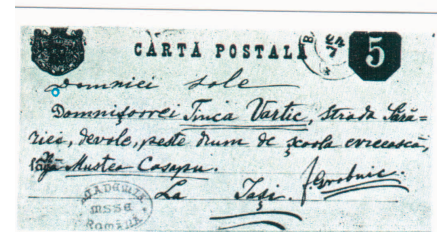 CARTA POSTALĂ
5
Domniei sole
Domnișoarei Tinca Vartic, strada Sără-
riei, devole, peste drum de școala evreească,
lôgă Mustea Casapu.
La Iași. f. Grabnic.
ACADEMIA
MSSE
Română